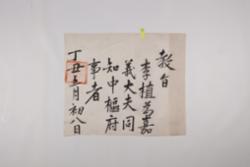 敎旨
李植爲嘉
義大夫同
知中樞府
事者
丁丑五月初八日